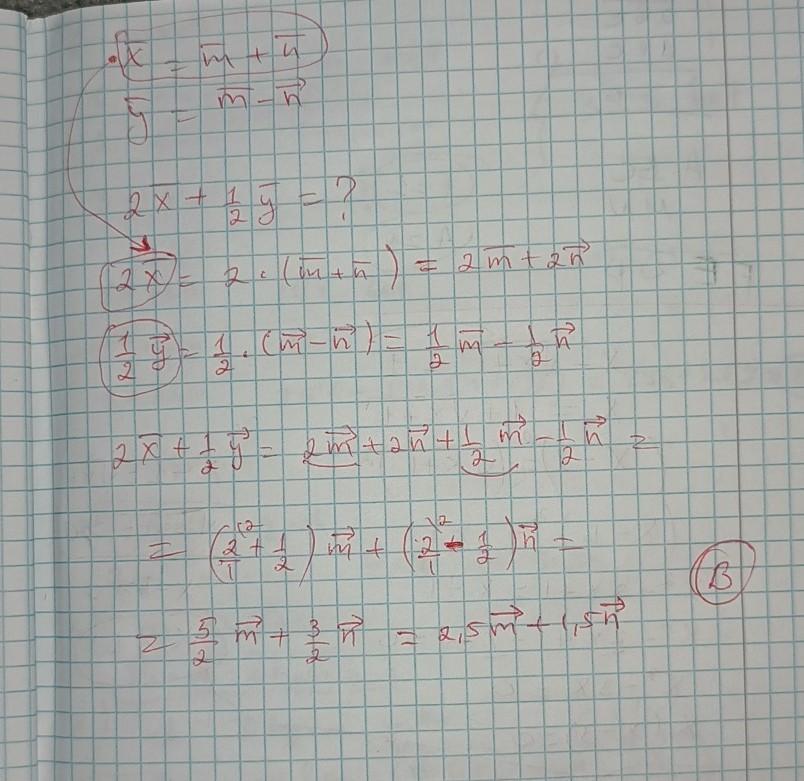 x̅ = m̅ + n̅
y̅ = m̅ − n⃗
2x̅ + 1/2 y̅ = ?
2x̅ = 2 · (m̅ + n̅) = 2m̅ + 2n⃗
1/2 y⃗ = 1/2 · (m⃗ − n⃗) = 1/2 m̅ − 1/2 n⃗
2x̅ + 1/2 y⃗ = 2m⃗ + 2n⃗ + 1/2 m⃗ − 1/2 n⃗ =
= (2/1 ⁽² + 1/2) m⃗ + (2/1 ⁾² - 1/2) n⃗ =
= 5/2 m⃗ + 3/2 n⃗ = 2,5m⃗ + 1,5n⃗
B